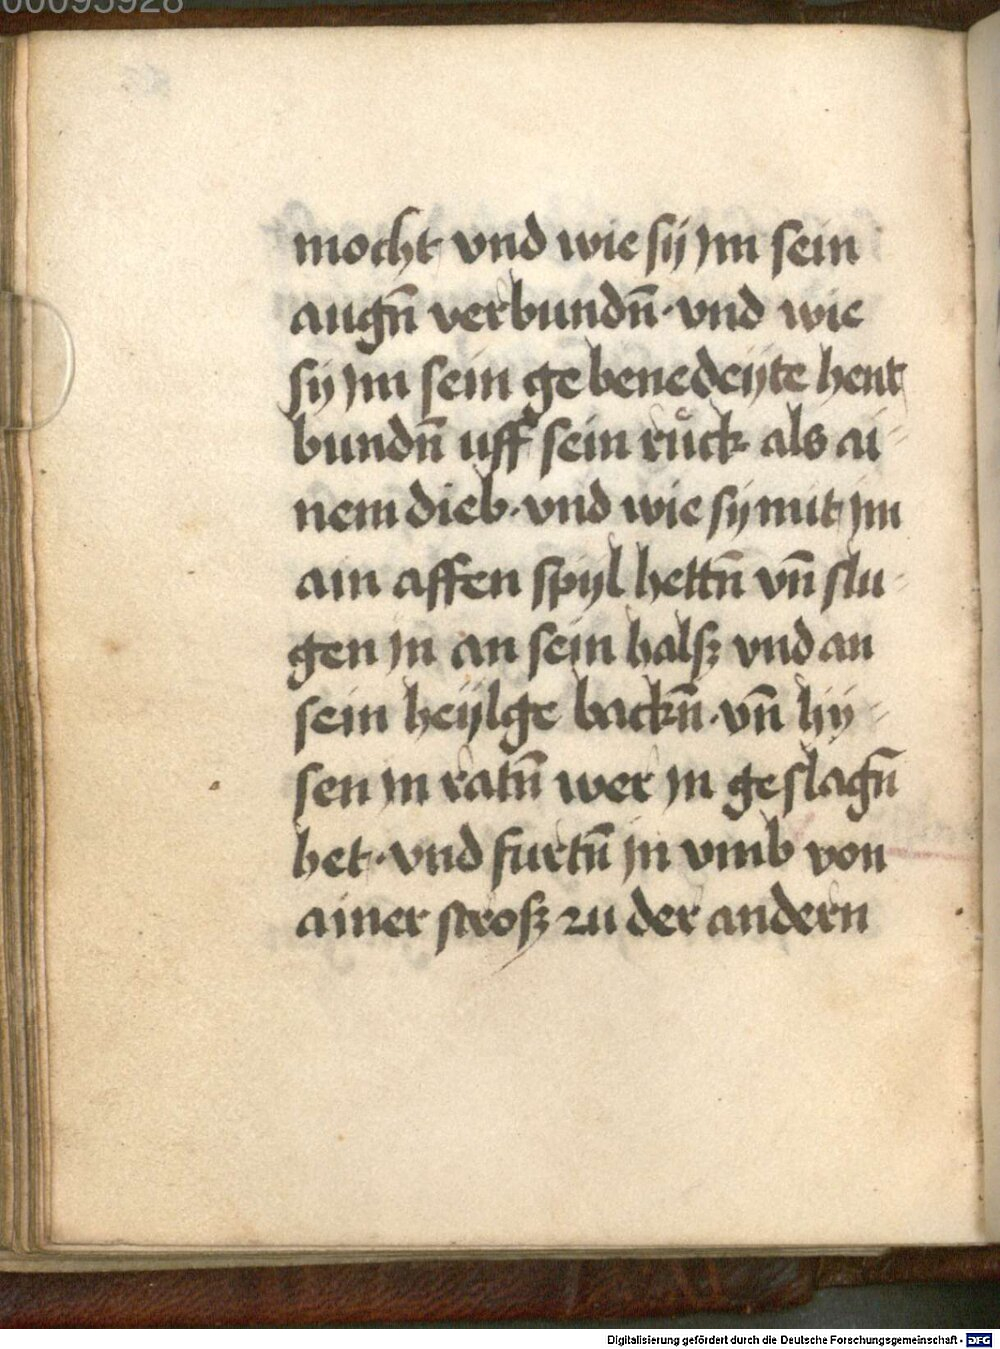 00095928
mocht vnd wie sÿ Im sein
augn̄ verbundn̄ · vnd wie
sÿ Im sein gebenedeÿte hent
bundn̄ uff sein růck als ai-
nem dieb · vnd wie sÿ mit Im
ain affen spÿl hettn̄ vn̄ slu-
gen In an sein halsz vnd an
sein heÿlge backn̄ · vn̄ hÿ-
sen In ratn̄ wer In geslagn̄
het · vnd furtn̄ In vmb von
ainer strosz zu der andern
Digitalisierung gefördert durch die Deutsche Forschungsgemeinschaft - DFG